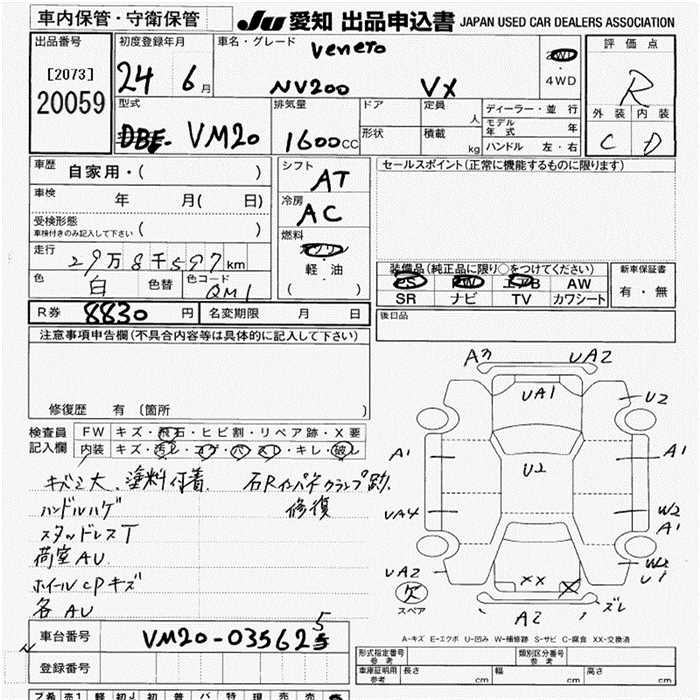 車内保管・守衛保管
JU 愛知 出品申込書 JAPAN USED CAR DEALERS ASSOCIATION
出品番号
[2073]
20059
初度登録年月
24 6月
車名・グレード
veneto
NV200 VX
2WD
・
4WD
評価点
R
外装 内装
C D
型式
DBF- VM20
排気量
1600cc
ドア
形状
定員
人
積載
kg
ディーラー・並行
モデル年式 年
ハンドル 左・右
車歴 自家用・( )
車検 年 月( 日)
受検形態
車検付きのみ記入して下さい ( )
走行 29万8千597km
色 白 色替 色コード QM1
シフト AT
冷房 AC
燃料
ガソリン
軽・油
( )
セールスポイント(正常に機能するものに限ります)
装備品(純正品に限り○をつけてください)
PS PW エアB AW
SR ナビ TV カワシート
新車保証書
有・無
後日品
R券 8830円
名変期限 月 日
注意事項申告欄(不具合内容等は具体的に記入して下さい)
修復歴 有 〔箇所 〕
検査員
記入欄
FW キズ・飛石・ヒビ割・リペア跡・X要
内装 キズ・汚レ・コゲ・穴・スレ・キレ・破レ
キズミ大、塗料付着、 石Rインパネクランプ跡、
ハンドルハゲ 修復
スタッドレスT
荷室AU
ホイールCPキズ
各AU
A3 UA2
UA1
U2
A1 A1
U2
UA4 W2
A1
UA2 W2
U1
欠
スペア
XX X
A2 ズレ
A-キズ E-エクボ U-凹み W-補修跡 S-サビ C-腐食 XX-交換済
車台番号 VM20-035625
登録番号
形式指定番号
参考
類別区分番号
参考
車庫証明用
参考
長さ cm 幅 cm 高さ cm